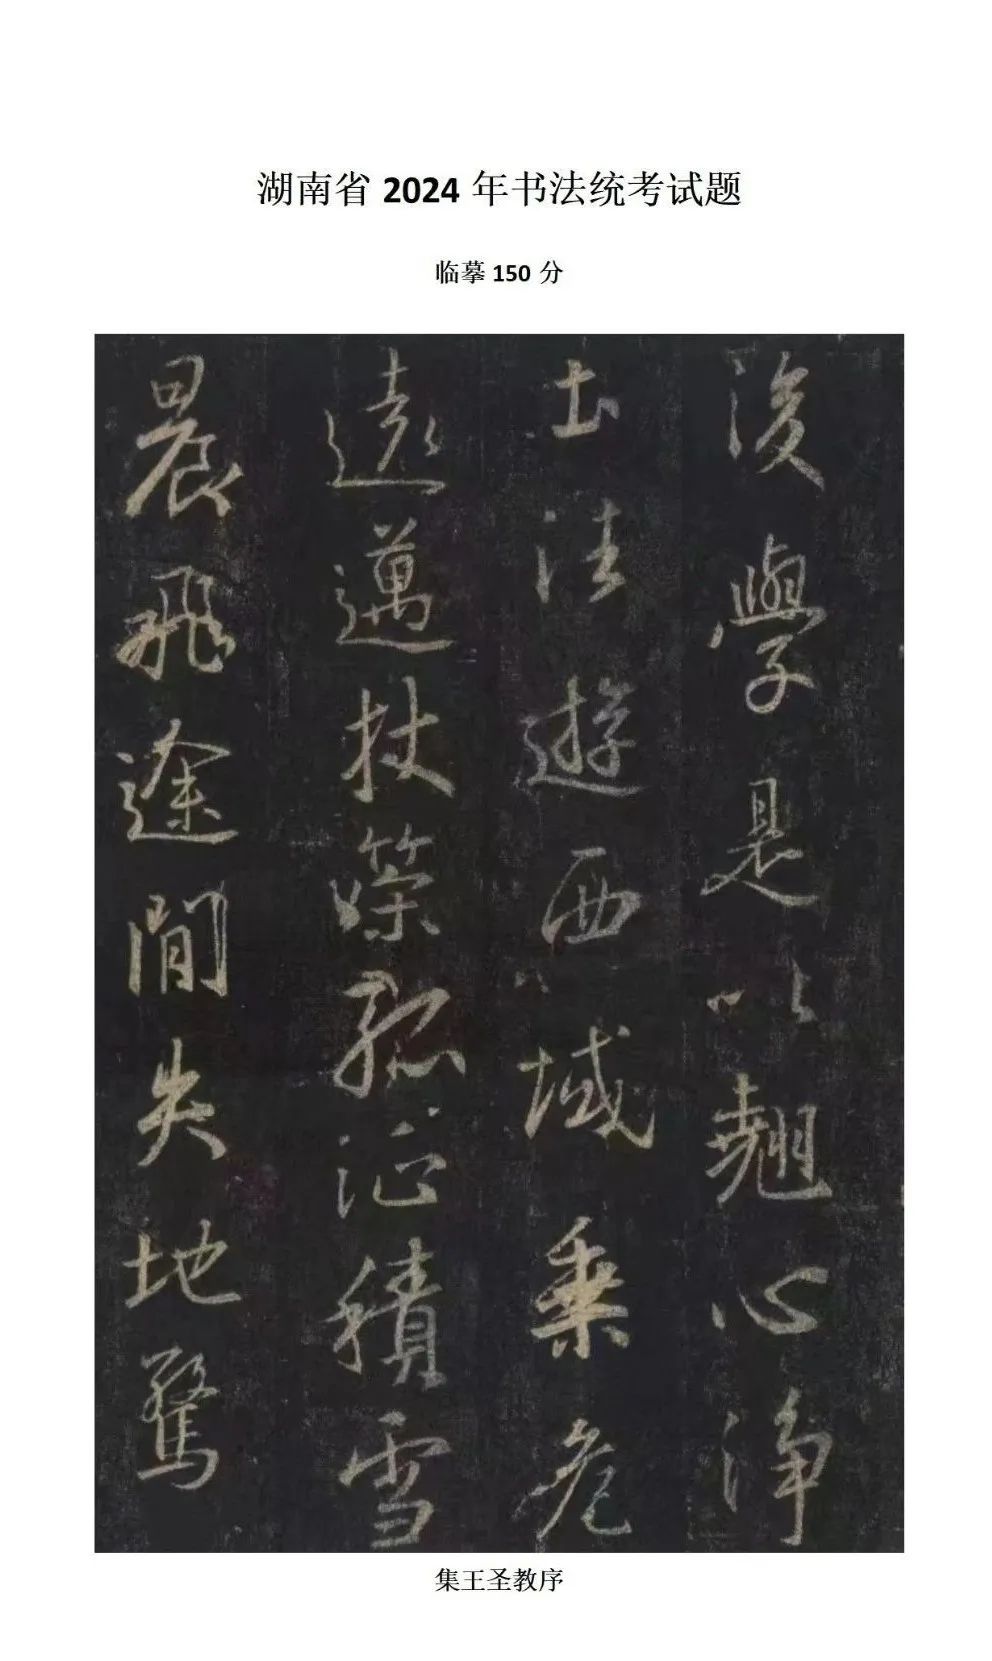 湖南省 2024 年书法统考试题
临摹 150 分
後學是以翹心淨
土法遊西域乘危
遠邁杖策孤征積雪
晨飛途閒失地驚
集王圣教序